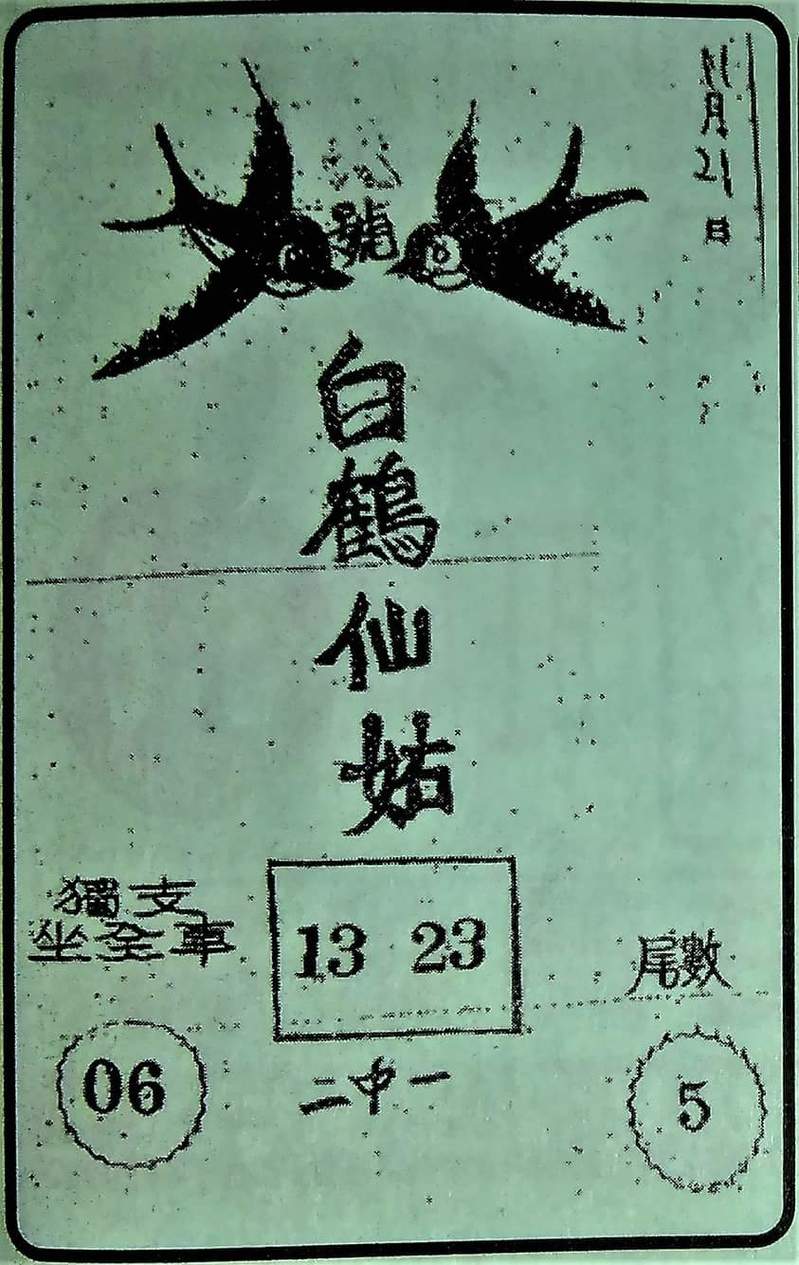 11月21日
號
白鶴仙姑
獨支
坐全車
06
13 23
二中一
尾數
5